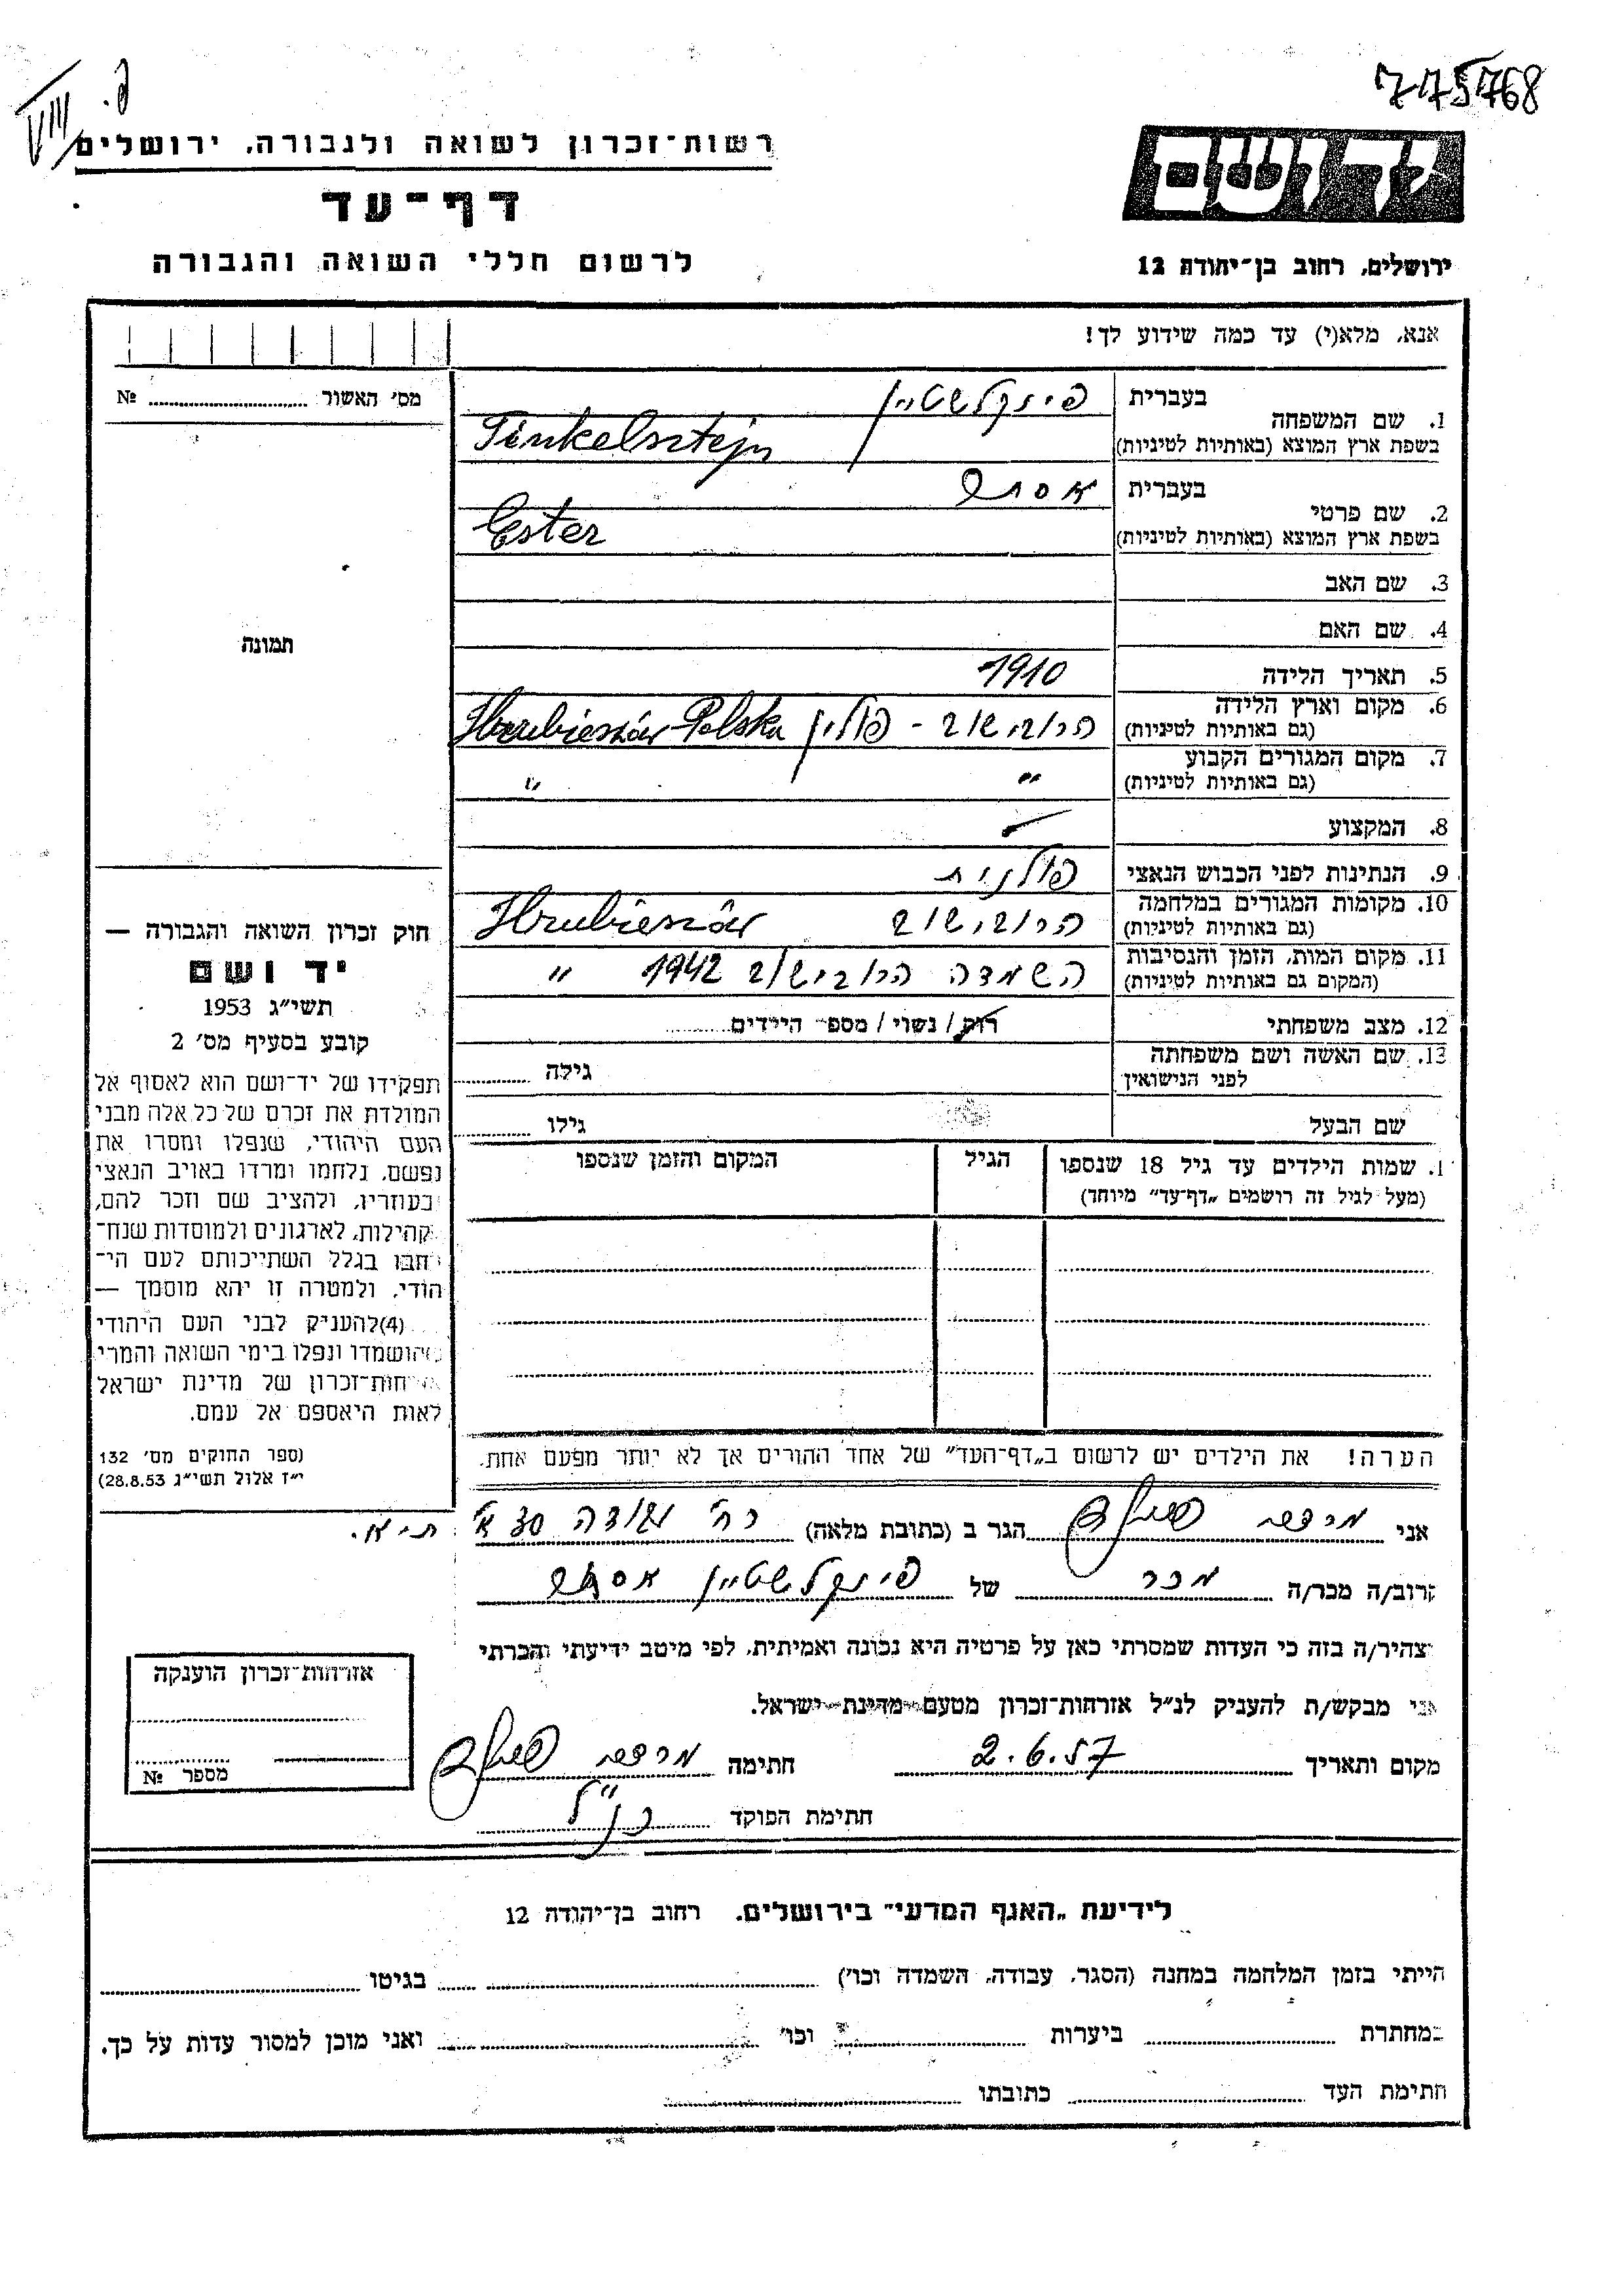 775768
פ.
VIII
רשות־זכרון לשואה ולגבורה, ירושלים
יד ושם
דף־עד
ירושלים, רחוב בן־יהודה 12
לרשום חללי השואה והגבורה
אנא, מלא(י) עד כמה שידוע לך!
מס׳ האשור № ........
1. שם המשפחה
בעברית פינקלשטיין
בשפת ארץ המוצא (באותיות לטיניות) Finkelsztejn
2. שם פרטי
בעברית אסתר
בשפת ארץ המוצא (באותיות לטיניות) Ester
3. שם האב
4. שם האם
תמונה
5. תאריך הלידה 1910
6. מקום וארץ הלידה
(גם באותיות לטיניות) הרובישוב - פולין Hrubieszów Polska
7. מקום המגורים הקבוע
(גם באותיות לטיניות) " "
8. המקצוע
9. הנתינות לפני הכבוש הנאצי פולנית
10. מקומות המגורים במלחמה
(גם באותיות לטיניות) הרובישוב Hrubieszów
11. מקום המות, הזמן והנסיבות
(המקום גם באותיות לטיניות) השמדה הרובישוב 1942 "
12. מצב משפחתי רוק / נשוי / מספר הילדים........
13. שם האשה ושם משפחתה
לפני הנישואין גילה ........
שם הבעל גילו ........
1. שמות הילדים עד גיל 18 שנספו
(מעל לגיל זה רושמים „דף־עד” מיוחד)
הגיל
המקום והזמן שנספו
חוק זכרון השואה והגבורה —
יד ושם
תשי״ג 1953
קובע בסעיף מס׳ 2
תפקידו של יד־ושם הוא לאסוף אל
המולדת את זכרם של כל אלה מבני
העם היהודי, שנפלו ומסרו את
נפשם, נלחמו ומרדו באויב הנאצי
בעוזריו, ולהציב שם וזכר להם,
קהילות, לארגונים ולמוסדות שנח־
רבו בגלל השתייכותם לעם הי־
הודי, ולמטרה זו יהא מוסמך —
(4) להעניק לבני העם היהודי
שהושמדו ונפלו בימי השואה והמרי
אזרחות־זכרון של מדינת ישראל
לאות היאספם אל עמם.
(ספר החוקים מס׳ 132
י״ז אלול תשי״ג 28.8.53)
הערה! את הילדים יש לרשום ב„דף־העד” של אחד ההורים אך לא יותר מפעם אחת.
אני מרדכי הגר ב (כתובת מלאה) רח׳ יהודה ת״א.
קרוב/ה מכר/ה מכר של פינקלשטיין אסתר
צהיר/ה בזה כי העדות שמסרתי כאן על פרטיה היא נכונה ואמיתית, לפי מיטב ידיעתי והכרתי
אני מבקש/ת להעניק לנ״ל אזרחות־זכרון מטעם מדינת ישראל.
מקום ותאריך 2.6.57 חתימה מרדכי
חתימת הפוקד כנ״ל
אזרחות־זכרון הוענקה
מספר №
לידיעת „האגף המדעי” בירושלים, רחוב בן־יהודה 12
הייתי בזמן המלחמה במחנה (הסגר, עבודה, השמדה וכו׳) ........ בגיטו ........
במחתרת ........ ביערות ........ וכו׳ ........ ואני מוכן למסור עדות על כך.
חתימת העד ........ כתובתו ........